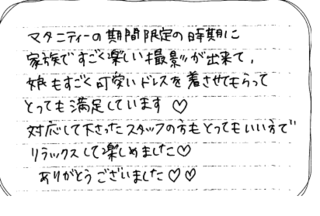 マタニティーの期間限定の時期に
家族ですごく楽しい撮影が出来て、
娘もすごく可愛いドレスを着させてもらって
とっても満足しています♡
対応して下さったスタッフの方もとってもいい方で
リラックスして楽しめました♡
ありがとうございました♡♡